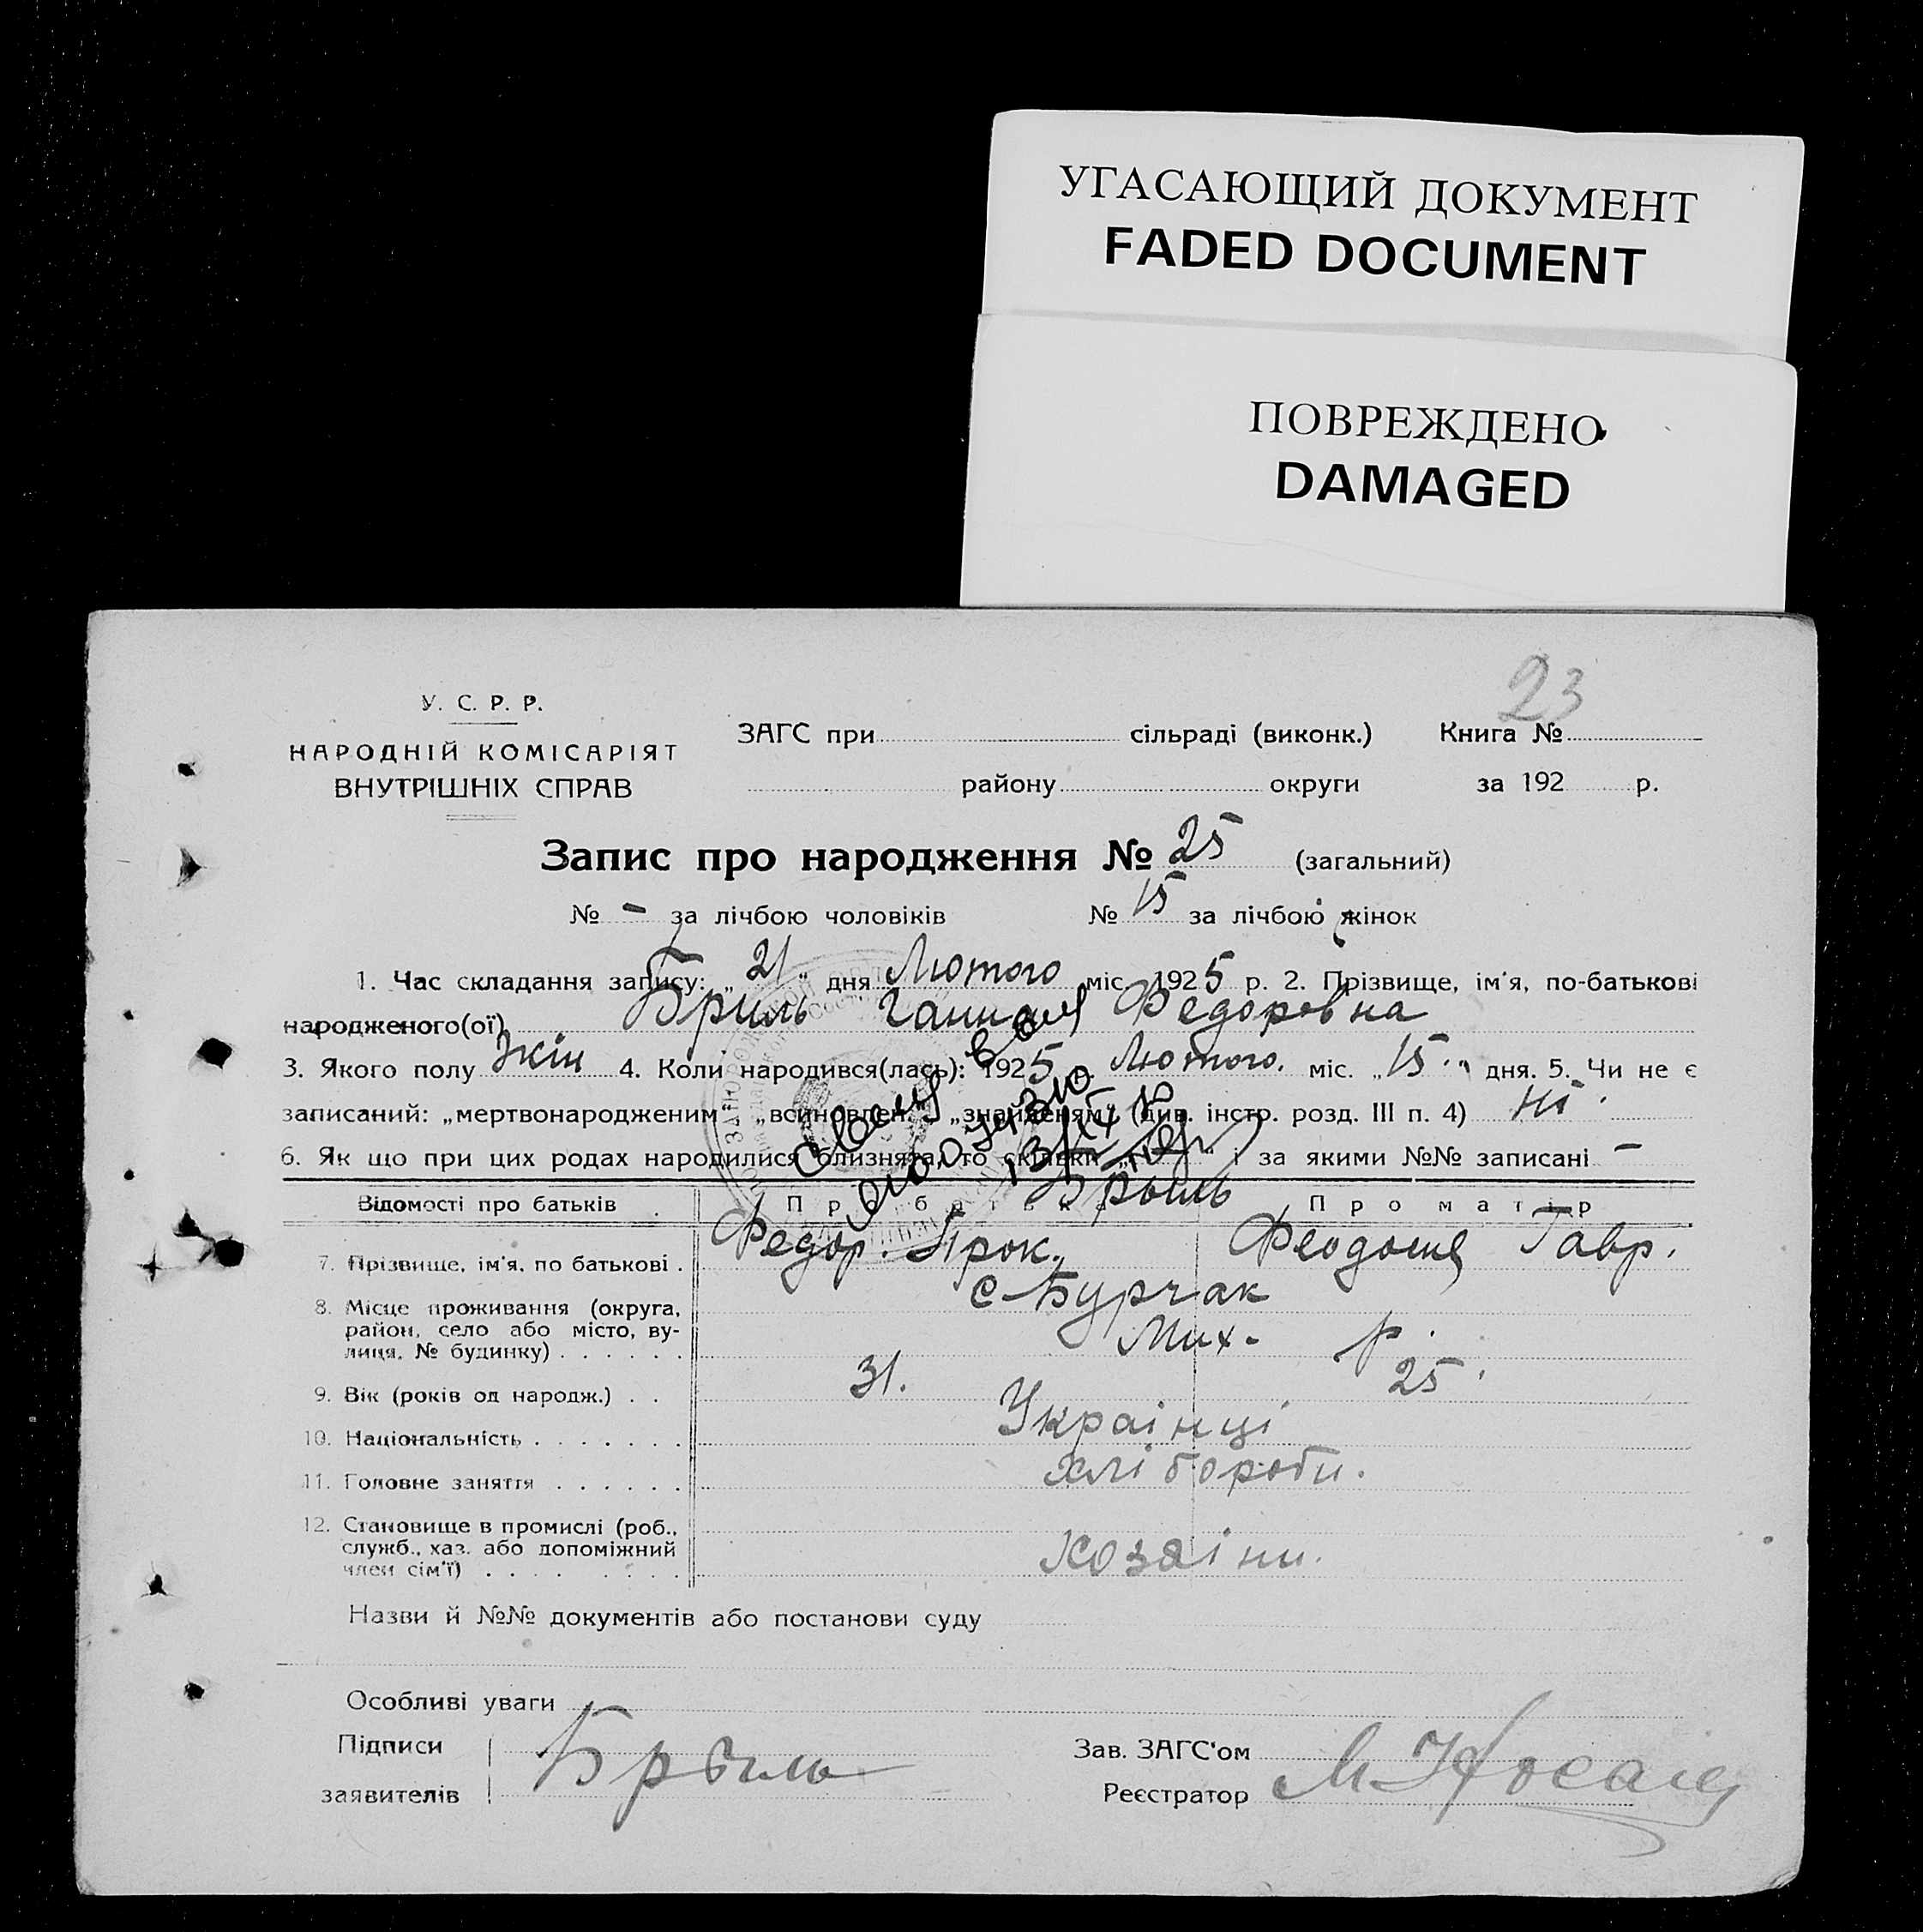 УГАСАЮЩИЙ ДОКУМЕНТ
FADED DOCUMENT
ПОВРЕЖДЕНО
DAMAGED
23
У. С. Р. Р.
НАРОДНІЙ КОМІСАРІЯТ
ВНУТРІШНІХ СПРАВ
ЗАГС при сільраді (виконк.) Книга №
району округи за 192 р.
Запис про народження № 25 (загальний)
№ - за лічбою чоловіків № 15 за лічбою жінок
1. Час складання запису: „21“ дня Лютого міс. 1925 р. 2. Прізвище, ім'я, по-батькові
народженого(ої) Бриль Ганна Федоровна
3. Якого полу жін 4. Коли народився(лась): 1925 Лютого. міс. „15“ дня. 5. Чи не є
записаний: „мертвонародженим“ „всиновлен.“ „знайденям“ (див. інстр. розд. III п. 4) ні.
6. Як що при цих родах народилися близнята, то скільки і за якими №№ записані -
Відомості про батьків Про батька Про матір
Бриль
7. Прізвище, ім'я, по батькові . Федор. Прок. Феодосія Гавр.
8. Місце проживання (округа, с Бурчак
район, село або місто, ву-
лиця, № будинку) . . . . . . Мих. р.
9. Вік (років од народж.) . . 31. 25.
10. Національність . . . . . . . Українці
11. Головне заняття . . . . . . Хлібороби.
12. Становище в промислі (роб.,
служб., хаз. або допоміжний
член сім'ї) . . . . . . . . . Хозяіни.
Назви й №№ документів або постанови суду
Особливі уваги
Підписи Бриль Зав. ЗАГС'ом
заявителів Реєстратор